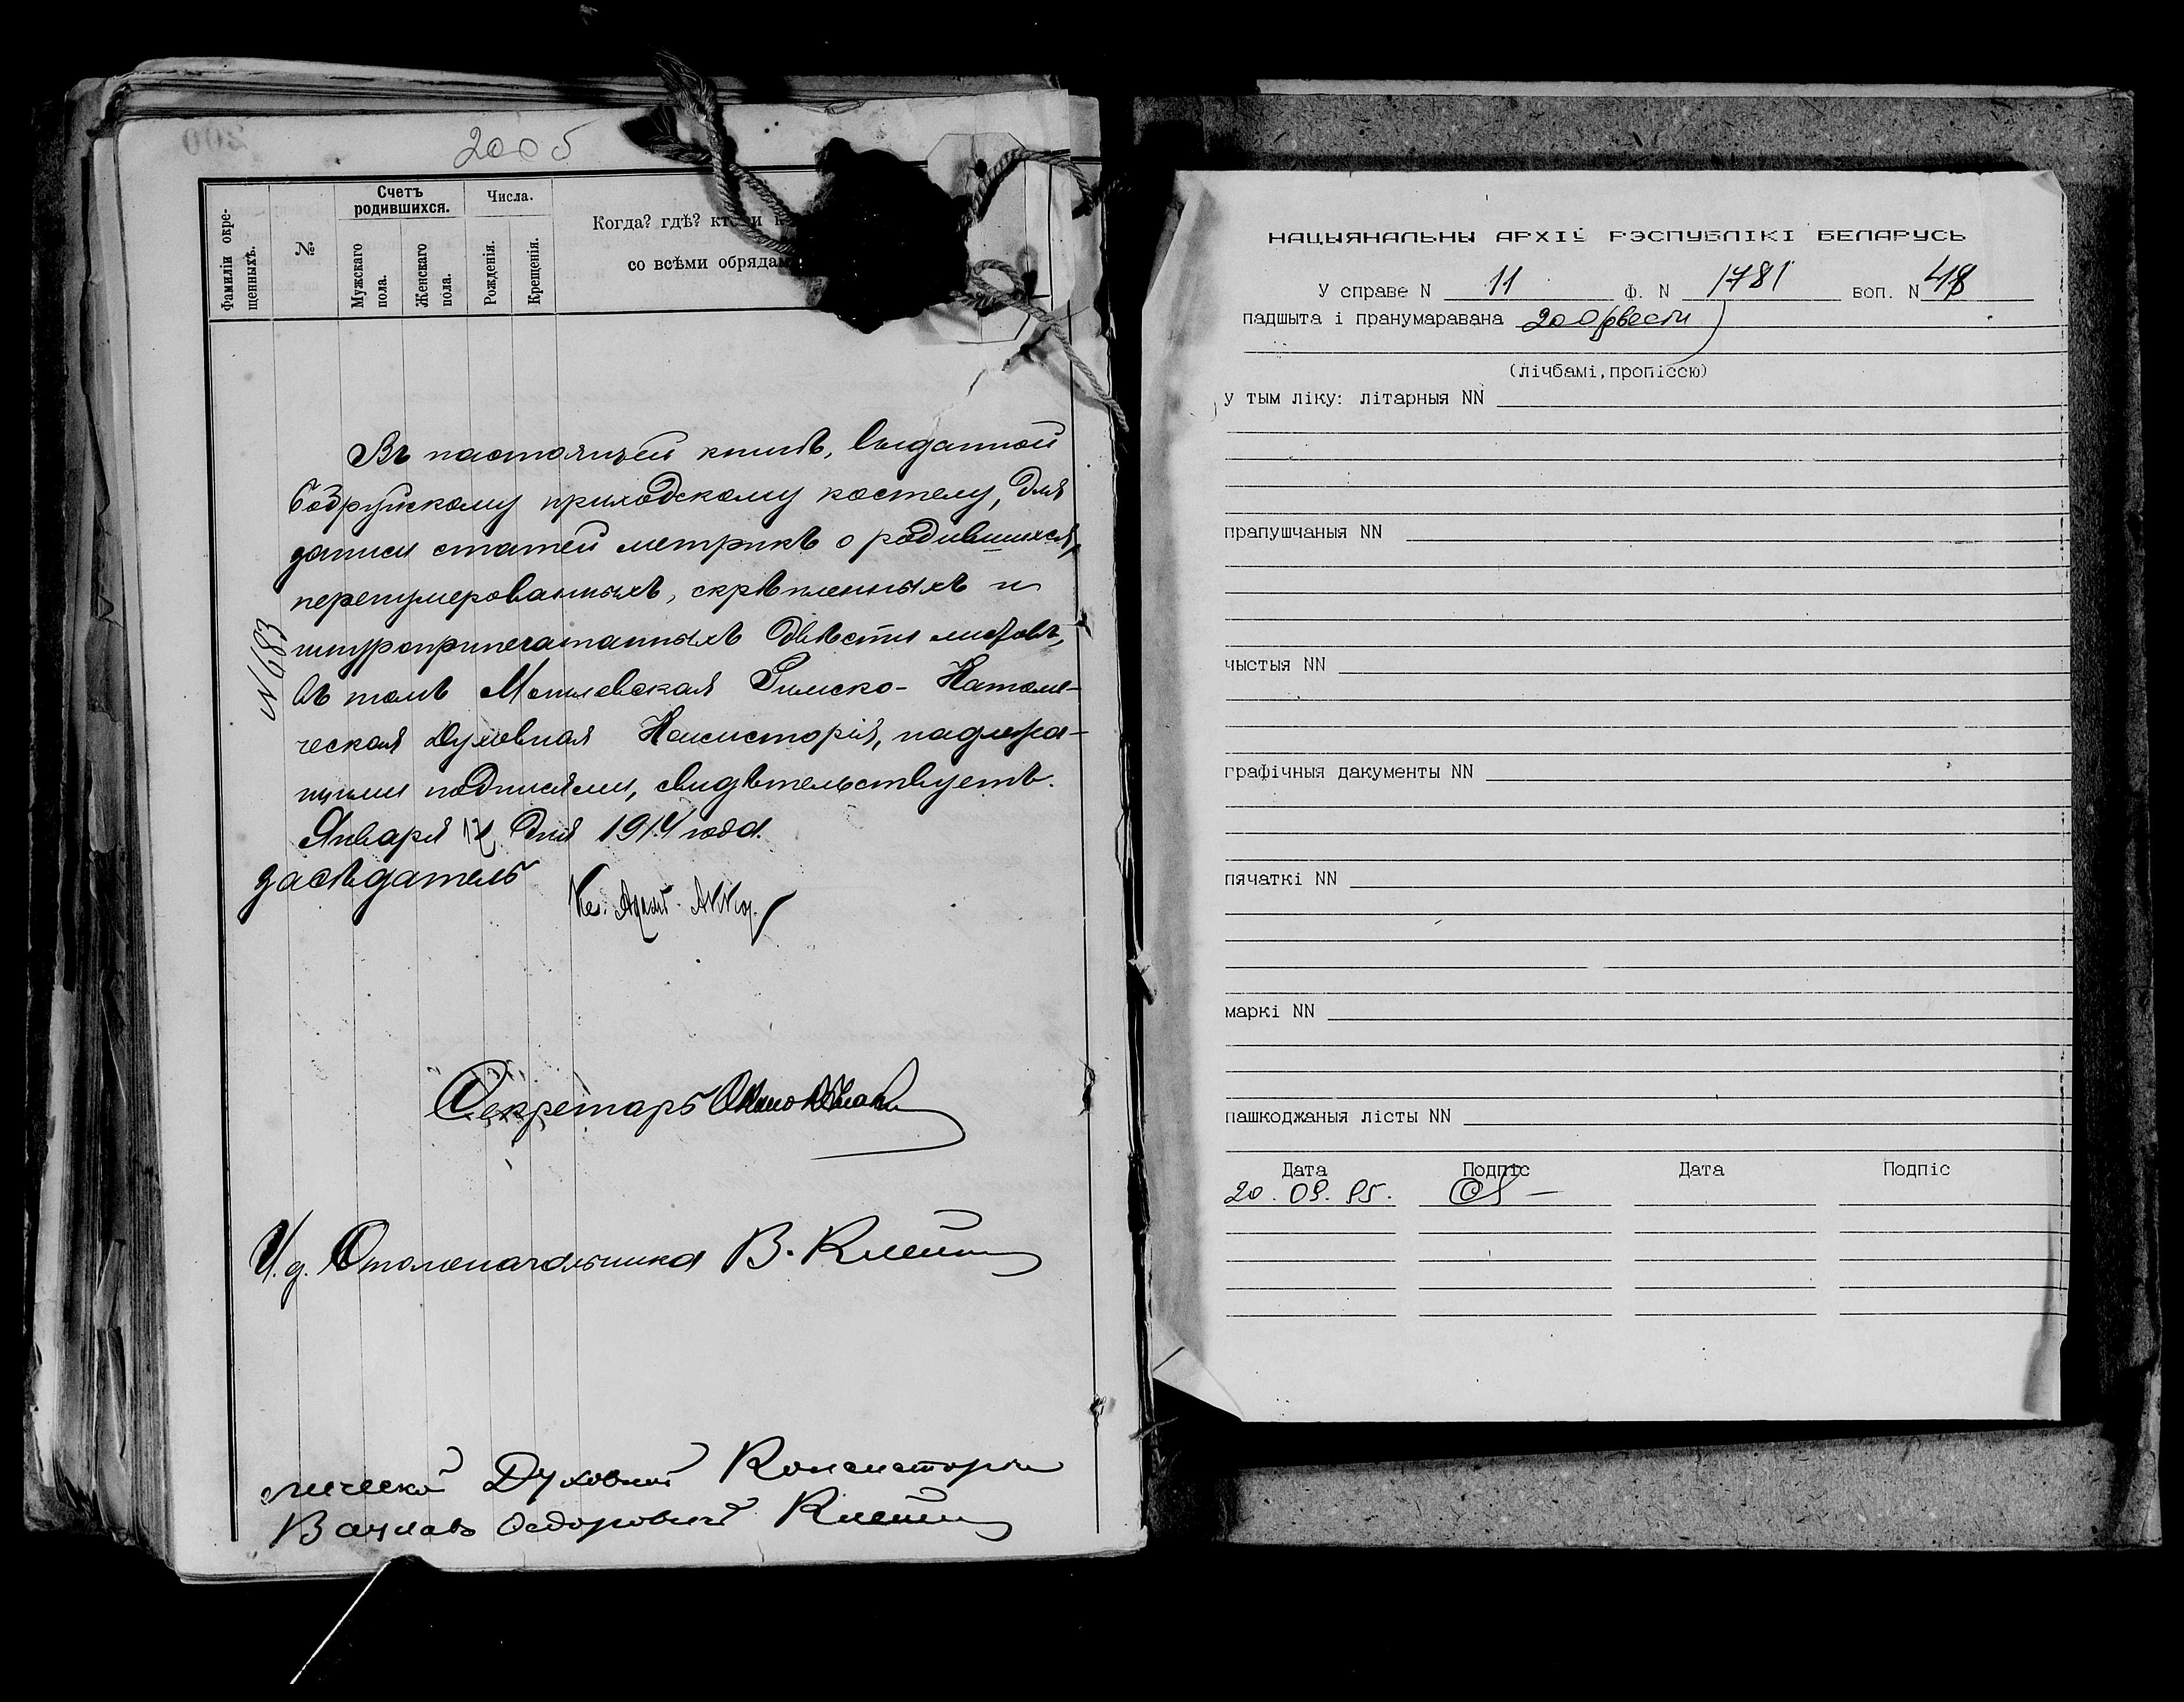 200б
Фамиліи окре-
щенныхъ.
№
Счетъ
родившихся.
Мужскаго
пола.
Женскаго
пола.
Числа.
Рожденія.
Крещенія.
Когда? гдѣ? кто и
со всѣми обрядам
Въ настоящей книгѣ, выданной
Бобруйскому приходскому костелу, для
записи статей метрикъ о родившихся,
перенумерованныхъ, скрѣпленныхъ и
шнуроприпечатанныхъ двѣсти листовъ,
въ томъ Могилевская Римско-Католи-
ческая Духовная Консисторія, надлежа-
щими подписями, свидѣтельствуетъ.
Января 17 дня 1914 года.
№683
засѣдатель
Секретарь
И.д. Столоначальника В. Клейн
лической Духовной Консисторіи
Вацлавъ Федоровичъ Клейн
НАЦЫЯНАЛЬНЫ АРХІЎ РЭСПУБЛІКІ БЕЛАРУСЬ
У справе N 11 Ф. N 1781 воп. N 48
падшыта і пранумаравана 200 (двести)
(лічбамі,пропіссю)
у тым ліку: літарныя NN
прапушчаныя NN
чыстыя NN
графічныя дакументы NN
пячаткі NN
маркі NN
пашкоджаныя лісты NN
Дата Подпіс Дата Подпіс
20. 09. 95.